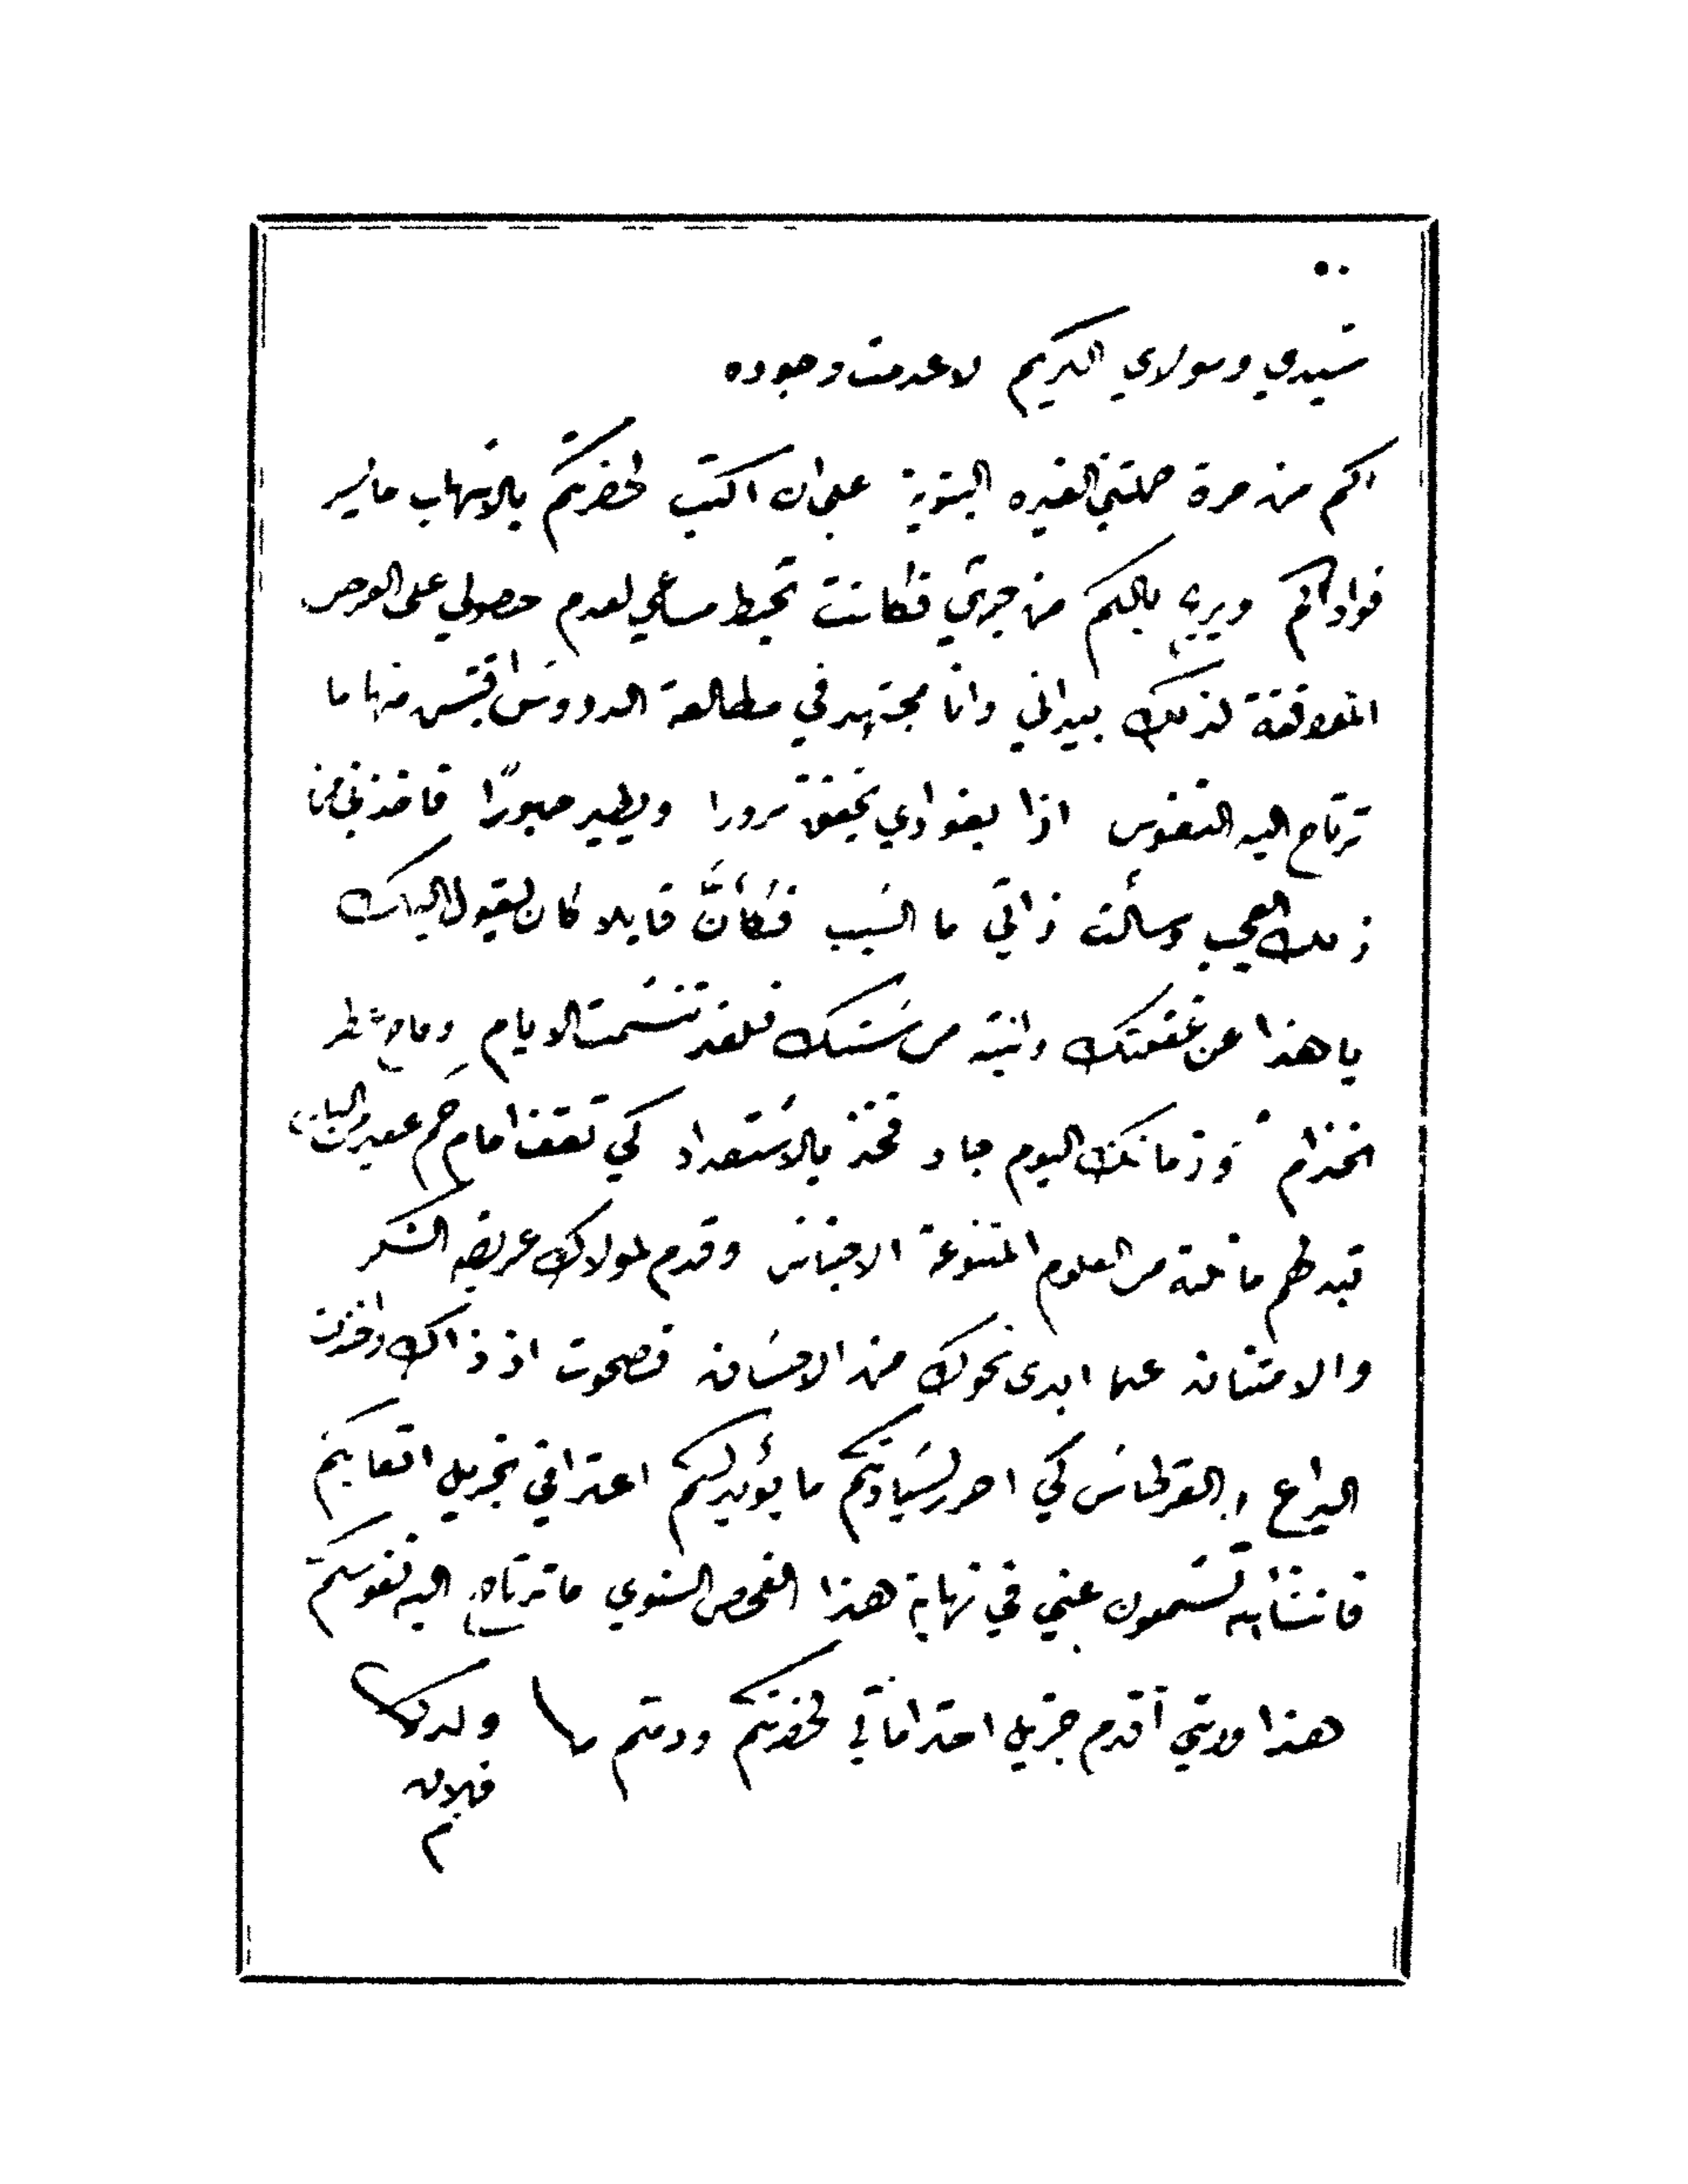 سيدي ومولاي الكريم لا عدمت وجوده
كم من مرة حملتني الغيره البنوية على ان اكتب لحضرتكم بالاسهاب ما يسر
فوادكم ويريح بالكم من جهتي فكانت تحبط مساعي لعدم حصولي على الفرص
الموافقة لذلك بيد اني وانا مجتهد في مطالعة الدروس اقتبس منها ما
ترتاح اليه النفوس اذا بفوادي يخفق سرورا ويطير حبورًا فاخذني من
ذلك العجب وسألت ذاتي ما السبب فكأنَّ قايلا كان يقول اليك
يا هذا عن غفلتك وانتبه من سنتك فلقد تنسمت الايام وفاح عطر
الخزام وزمانك اليوم جاد فخذ بالاستعداد كي تقف امام جم غفير من الناس
تبد لهم ما نلته من العلوم المتنوعة الاجناس وقدم لمولاك عريضة الشكر
والامتنان عما ابدى نحوك من الاحسان فصحوت اذ ذاك واخذت
اليراع والقرطاس كي احرر لسيادتكم ما يؤيد لكم اعترافي بجزيل اتعابكم
فانشالله تسمعون عني في نهاية هذا الفحص السنوي ما ترتاح اليه نفوسكم
هذا وانني أقدم جزيل احتراماتي لحضرتكم ودمتم
ولدكم
فلان